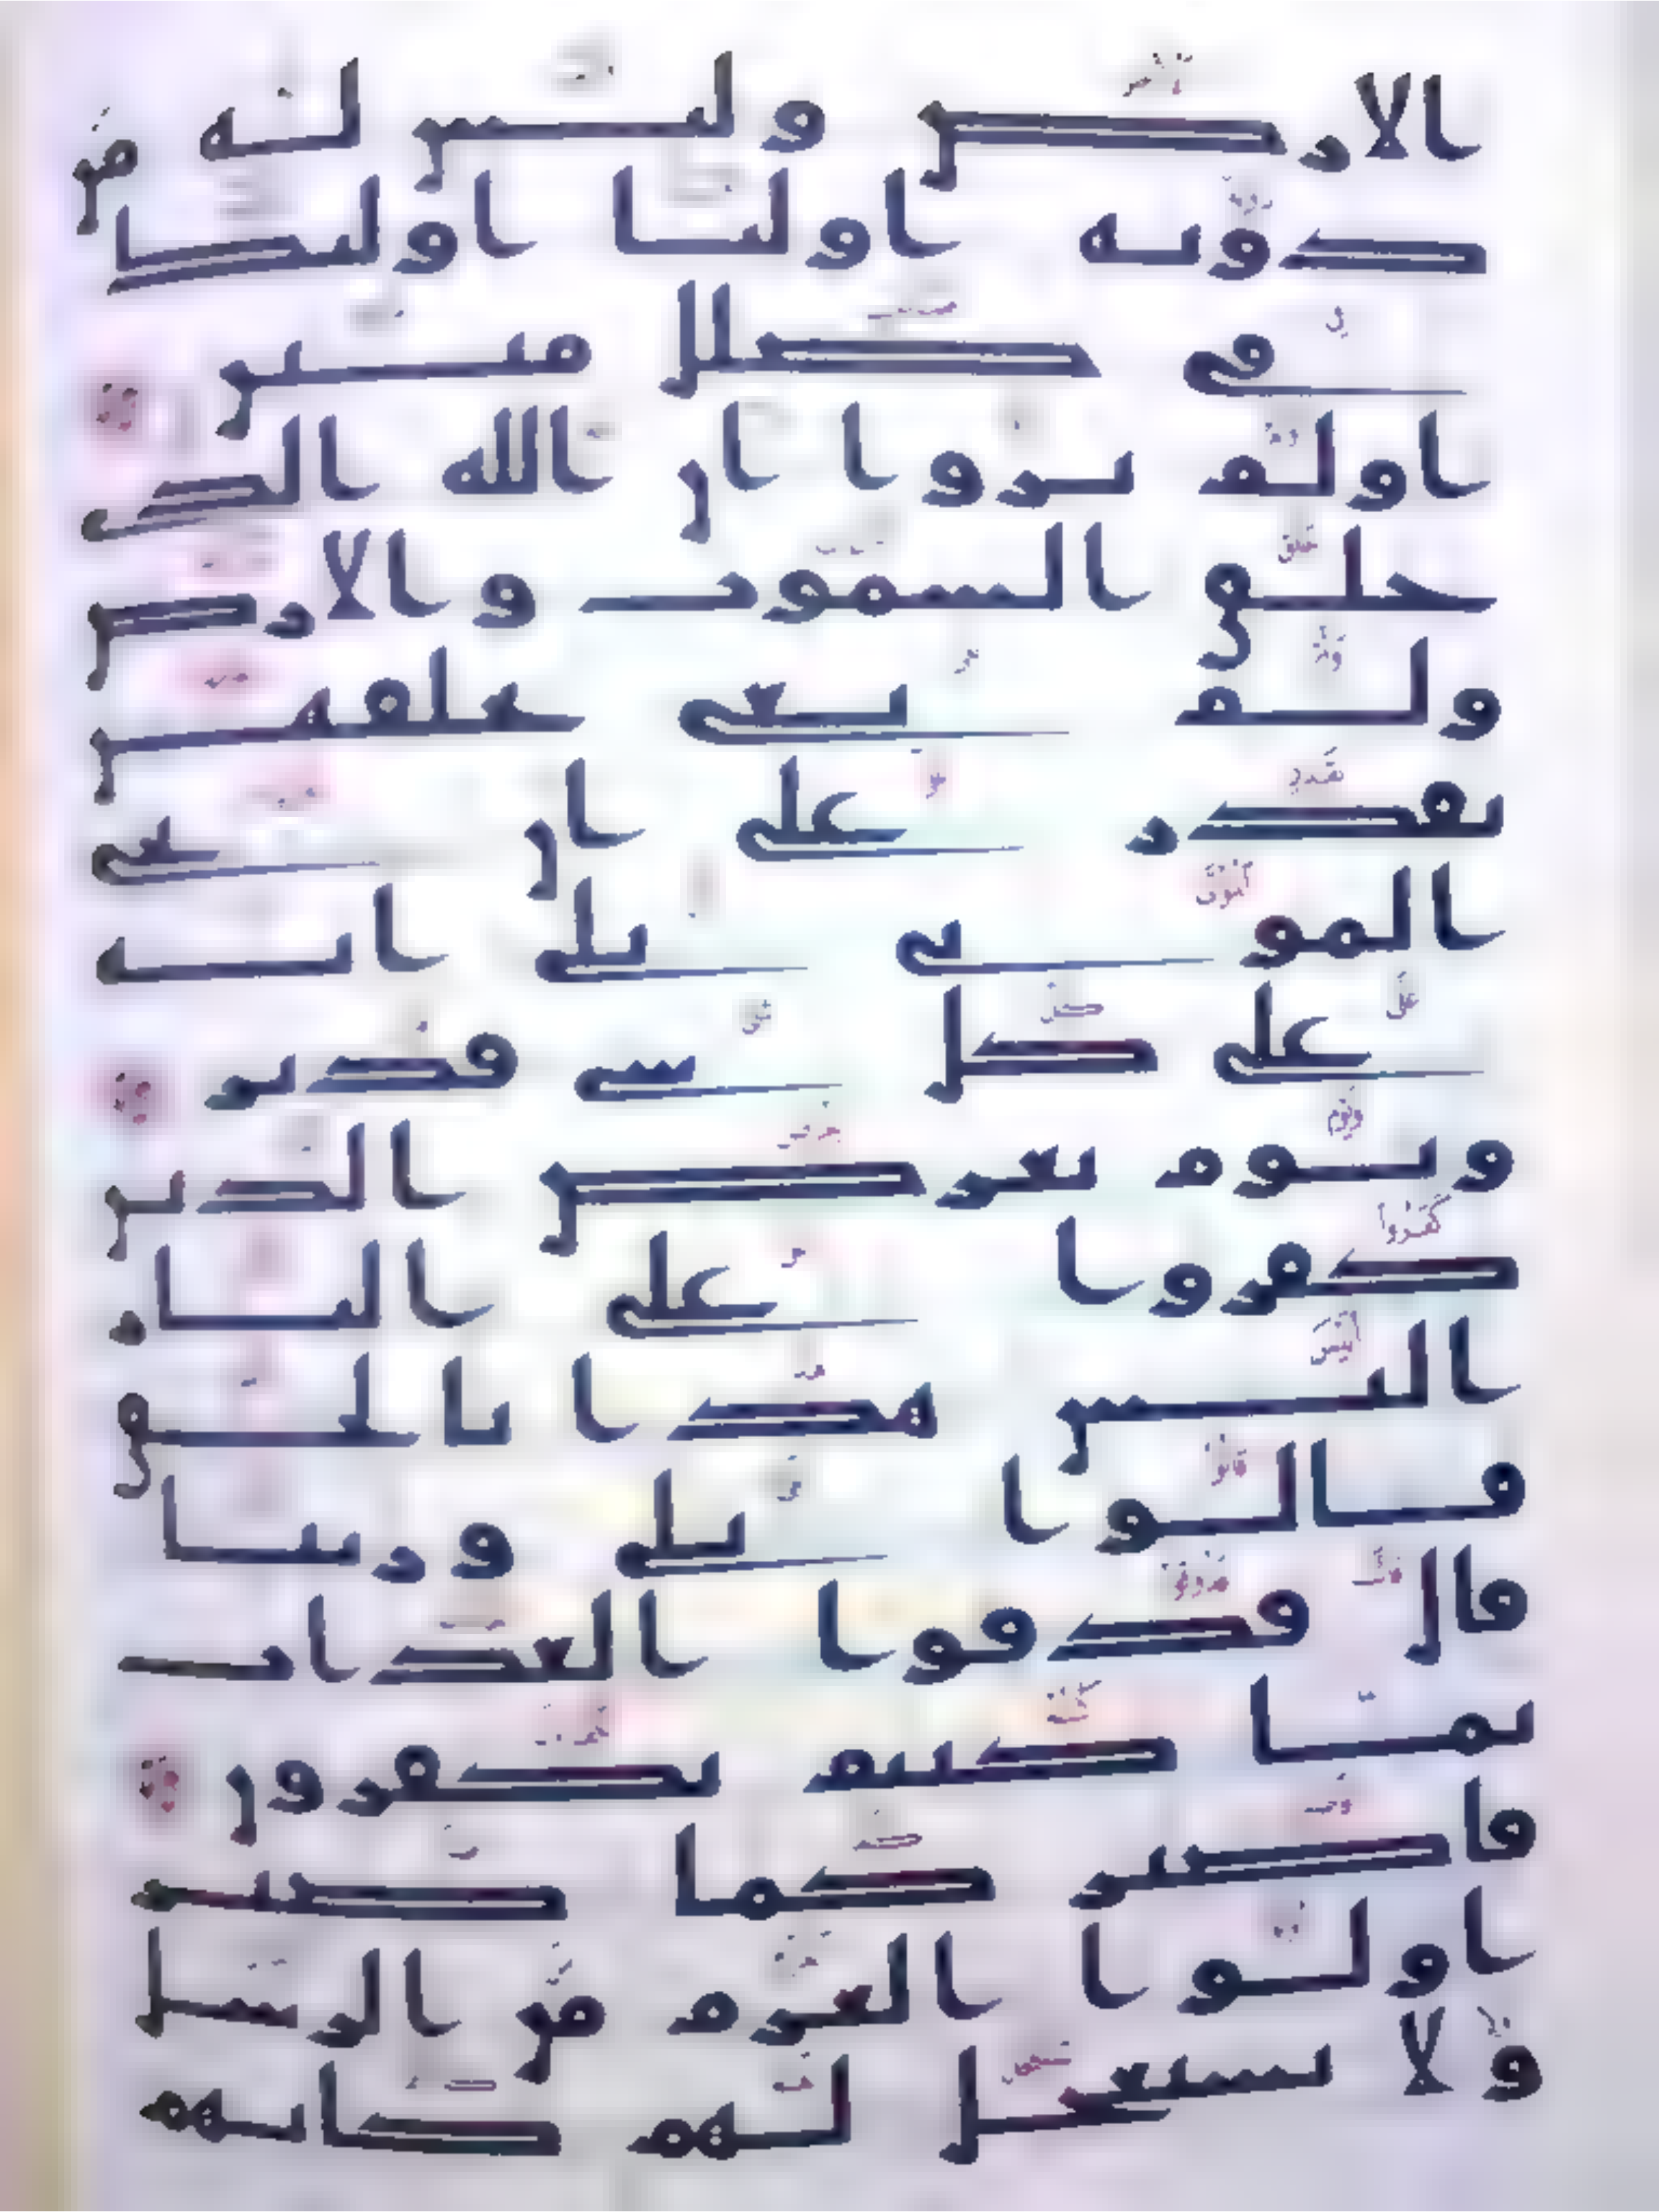 الارض وليس له من
دونه اوليا اوليك
في ضلل مبين
اولم يروا ان الله الذي
خلق السموت والارض
ولم يعي بخلقهن
بقدر على ان يحي
الموتى بلى انه
على كل شي قدير
ويوم يعرض الذين
كفروا على النار
اليس هذا بالحق
قالوا بلى وربنا
قال فذوقوا العذاب
بما كنتم تكفرون
فاصبر كما صبر
اولوا العزم من الرسل
ولا تستعجل لهم كانهم